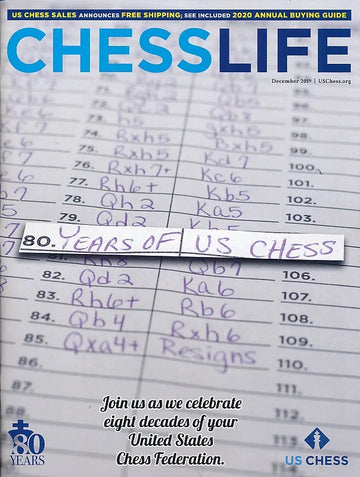 US CHESS SALES ANNOUNCES FREE SHIPPING; SEE INCLUDED 2020 ANNUAL BUYING GUIDE
CHESSLIFE
December 2019 | USChess.org
74. Rxh5
75. Rxh5 Bxh5 99.
76. Rxh7+ Kd7 100.
77. Rh6+ Kc6 101.
78. Qh2 Kb5 102.
79. Qd2 Ka5 103.
80. YEARS OF US CHESS
82. Qd2 Qb7 106.
83. Rh6+ Ka6 107.
84. Qb4 Rb6 108.
85. Qxa4+ Rxh6 109.
86. Resigns 110.
87. 111.
88. 112.
Join us as we celebrate
eight decades of your
United States
Chess Federation.
80
YEARS
US CHESS